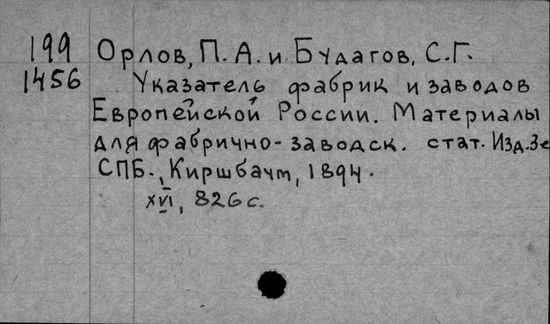 199 Орлов, П. А. и Будагов, С. Г.
1456 Указатель фабрик и заводов
Европейской России. Материалы
для фабрично-заводск. стат. Изд. 3е
СПБ., Киршбаум, 1894.
XVI, 826 с.